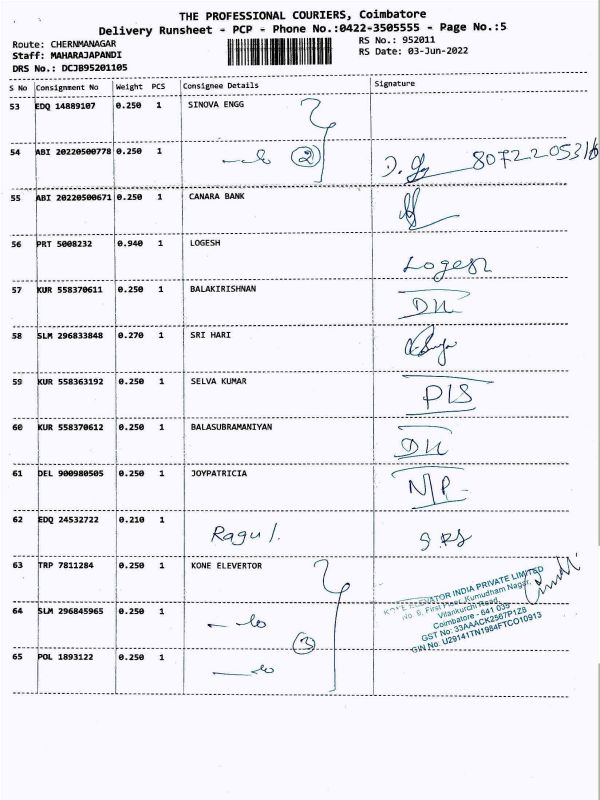 THE PROFESSIONAL COURIERS, Coimbatore
Delivery Runsheet - PCP - Phone No.:0422-3505555 - Page No.:5
Route: CHERNMANAGAR
Staff: MAHARAJAPANDI
DRS No.: DCJB95201105
RS No.: 952011
RS Date: 03-Jun-2022
S No Consignment No Weight PCS Consignee Details Signature
53 EDQ 14889107 0.250 1 SINOVA ENGG
54 ABI 20220500778 0.250 1 2 8072205316
55 ABI 20220500671 0.250 1 CANARA BANK
56 PRT 5008232 0.940 1 LOGESH
Logesh
57 KUR 558370611 0.250 1 BALAKIRISHNAN
58 SLM 296833848 0.270 1 SRI HARI
59 KUR 558363192 0.250 1 SELVA KUMAR
60 KUR 558370612 0.250 1 BALASUBRAMANIYAN
61 DEL 900980505 0.250 1 JOYPATRICIA
N/P
62 EDQ 24532722 0.210 1 Ragul.
63 TRP 7811284 0.250 1 KONE ELEVERTOR
64 SLM 296845965 0.250 1
3
65 POL 1893122 0.250 1
KONE ELEVATOR INDIA PRIVATE LIMITED
No. 9, First Floor, Kumudham Nagar,
Vilankurchi Road,
Coimbatore - 641 035
GST No: 33AAACK2567P1Z8
GIN No: U29141TN1984FTCO10913